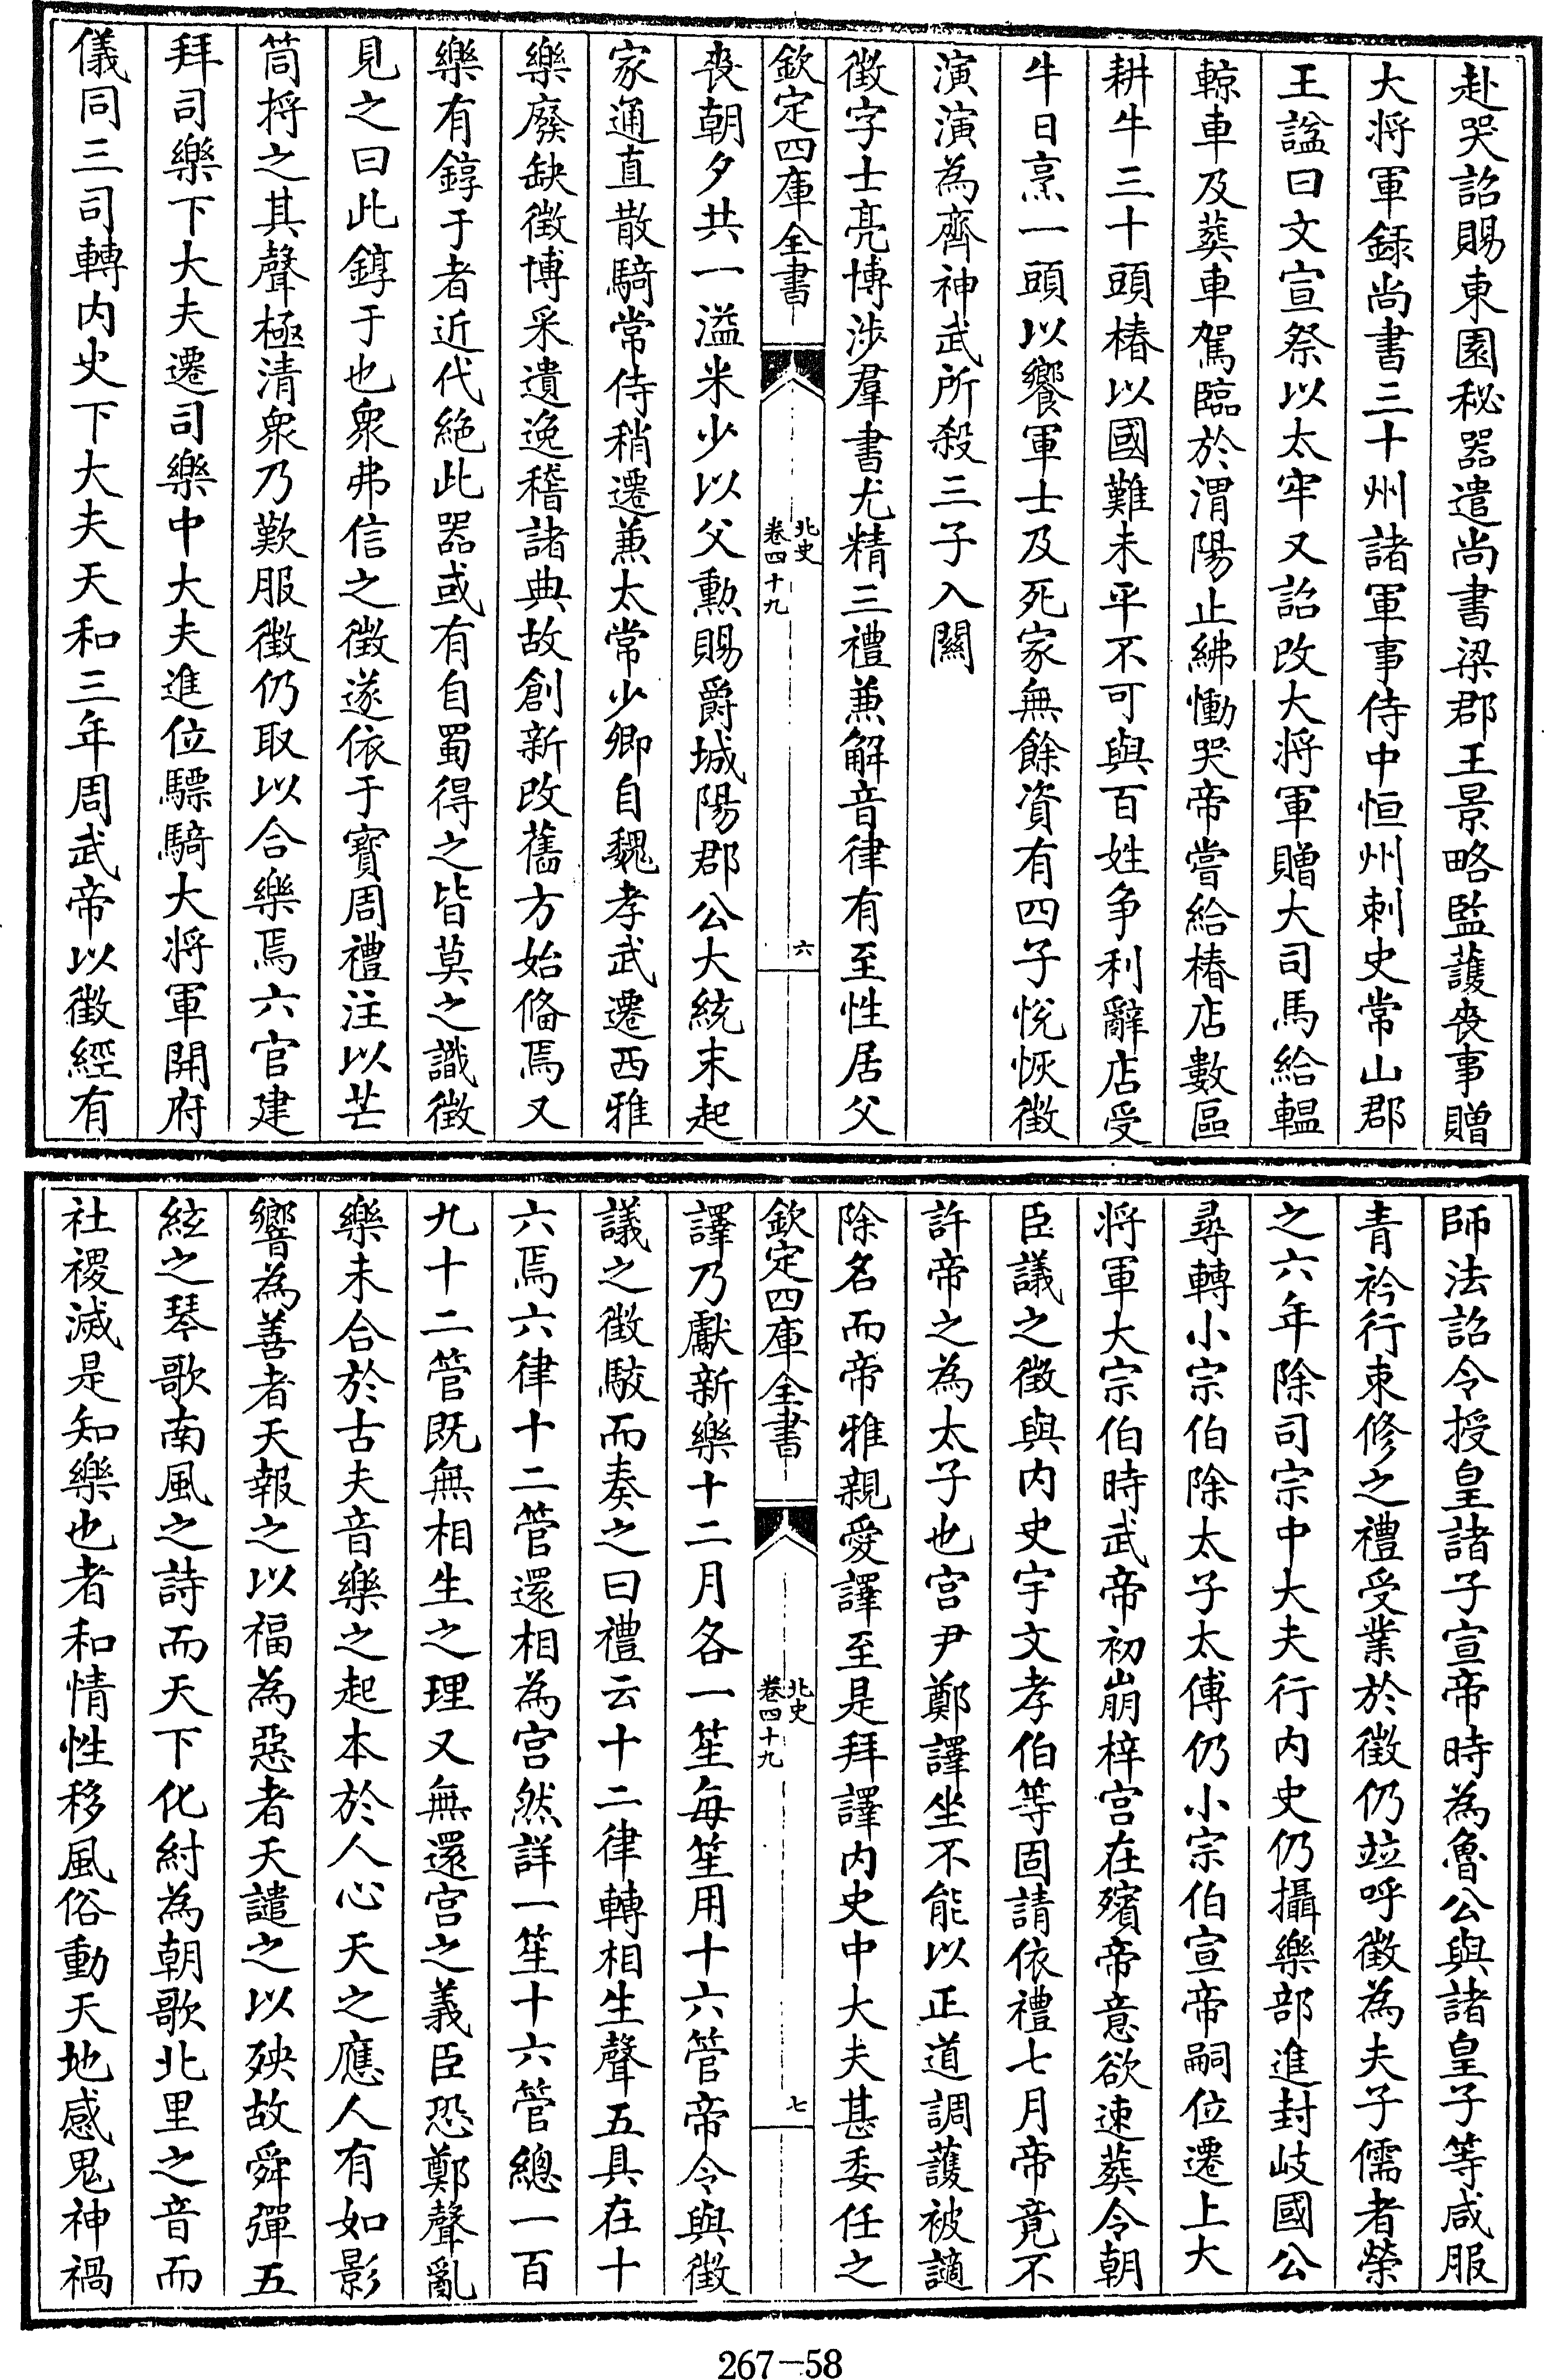 赴哭詔賜東園秘器遣尚書梁郡王景略監護喪事贈
大將軍録尚書三十州諸軍事侍中恒州刺史常山郡
王諡曰文宣祭以太牢又詔改大將軍贈大司馬給轀
輬車及葬車駕臨於渭陽止紼慟哭帝嘗給椿店數區
耕牛三十頭椿以國難未平不可與百姓争利辭店受
牛日烹一頭以饗軍士及死家無餘資有四子悅恢徵
演演為齊神武所殺三子入關
徵字士亮博涉羣書尤精三禮兼解音律有至性居父
欽定四庫全書
北史
卷四十九
六
喪朝夕共一溢米少以父勳賜爵城陽郡公大統末起
家通直散騎常侍稍遷兼太常少卿自魏孝武遷西雅
樂廢缺徵博采遺逸稽諸典故創新改舊方始備焉又
樂有錞于者近代絶此器或有自蜀得之皆莫之識徵
見之曰此錞于也衆弗信之徵遂依于寳周禮注以芒
筒捋之其聲極清衆乃歎服徵仍取以合樂焉六官建
拜司樂下大夫遷司樂中大夫進位驃騎大將軍開府
儀同三司轉内史下大夫天和三年周武帝以徵經有
師法詔令授皇諸子宣帝時為魯公與諸皇子等咸服
青衿行束修之禮受業於徵仍竝呼徵為夫子儒者榮
之六年除司宗中大夫行内史仍攝樂部進封岐國公
尋轉小宗伯除太子太傅仍小宗伯宣帝嗣位遷上大
將軍大宗伯時武帝初崩梓宫在殯帝意欲速葬令朝
臣議之徵與内史宇文孝伯等固請依禮七月帝竟不
許帝之為太子也宫尹鄭譯坐不能以正道調護被謫
除名而帝雅親愛譯至是拜譯内史中大夫甚委任之
欽定四庫全書
北史
卷四十九
七
譯乃獻新樂十二月各一笙每笙用十六管帝令與徵
議之徵駮而奏之曰禮云十二律轉相生聲五具在十
六焉六律十二管還相為宫然詳一笙十六管總一百
九十二管既無相生之理又無還宫之義臣恐鄭聲亂
樂未合於古夫音樂之起本於人心天之應人有如影
響為善者天報之以福為惡者天譴之以殃故舜彈五
絃之琴歌南風之詩而天下化紂為朝歌北里之音而
社稷滅是知樂也者和情性移風俗動天地感鬼神禍
267-58